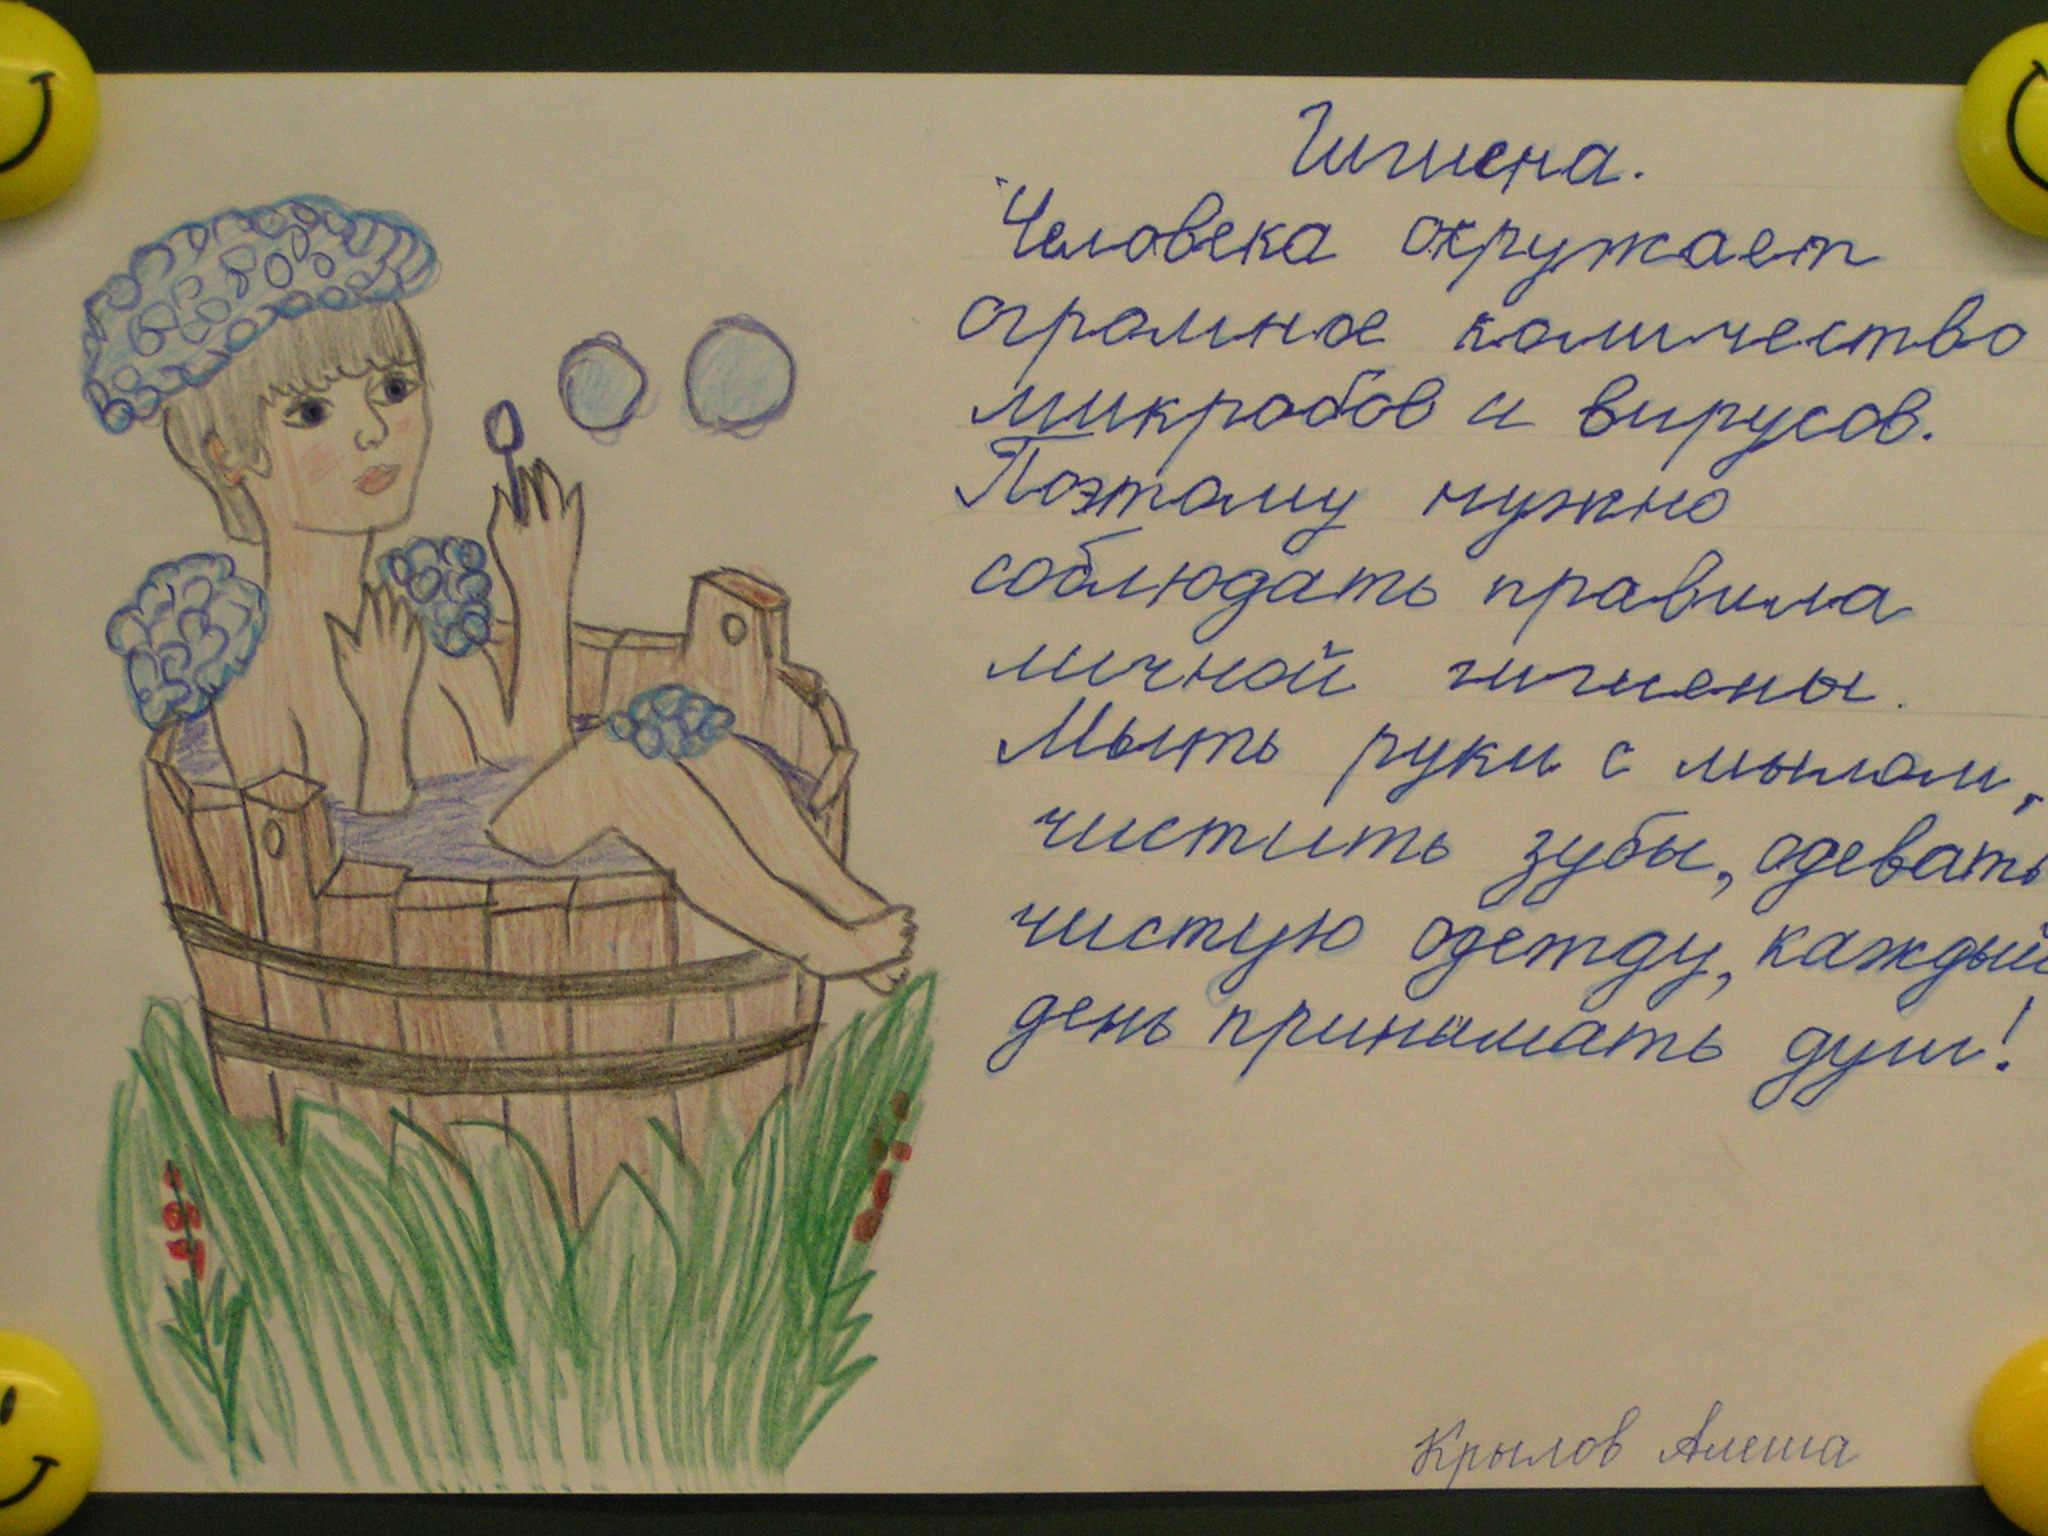 Гигиена.
Человека окружает
огромное количество
микробов и вирусов.
Поэтому нужно
соблюдать правила
личной гигиены.
Мыть руки с мылом,
чистить зубы, одевать
чистую одежду, каждый
день принимать душ!
Крылов Алеша